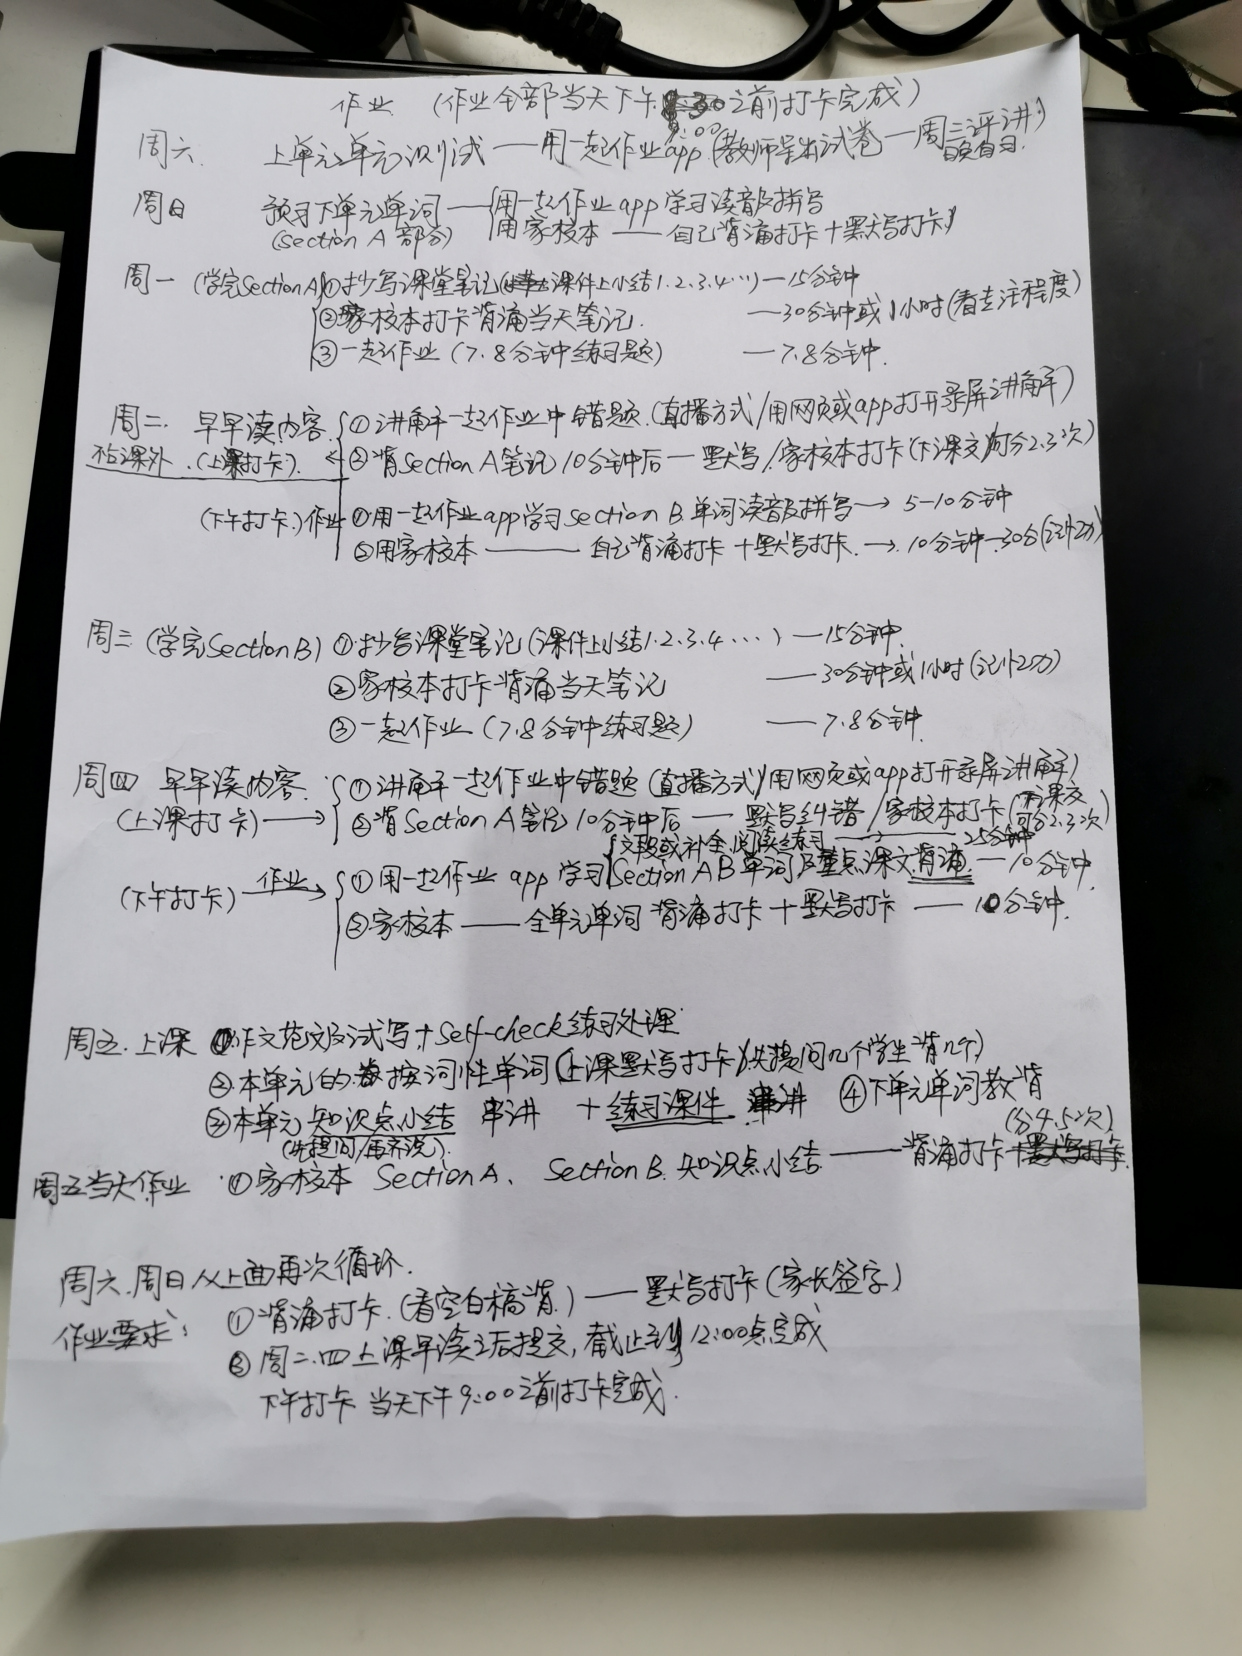 作业 (作业全部当天下午 9:00 之前打卡完成)
周六. 上单元单元测试——用一起作业app(教师呈出试卷—周三评讲)
晚自习.
周日 预习下单元单词——用一起作业app学习读音及拼写
(Section A 部分) 用家校本——自己背诵打卡+默写打卡
周一 (学完Section A) ①抄写课堂笔记(课件上小结1.2.3.4…)—15分钟
②家校本打卡背诵当天笔记. —30分钟或1小时(看专注程度)
③一起作业(7.8分钟练习题) —7.8分钟.
周二. 早早读内容 ①讲解一起作业中错题.(直播方式/用网页或app打开录屏讲解)
(上课打卡). ②背Section A笔记10分钟后—默写/家校本打卡(下课交/可分2.3次)
(下午打卡)作业 ①用一起作业app学习Section B.单词读音及拼写→5-10分钟
②用家校本——自己背诵打卡+默写打卡.→.10分钟-30分(记忆力)
周三(学完Section B) ①抄写课堂笔记(课件上小结1.2.3.4....)—15分钟.
②家校本打卡背诵当天笔记 —30分钟或1小时(记忆力)
③一起作业(7.8分钟练习题) —7.8分钟.
周四 早早读内容. ①讲解一起作业中错题(直播方式/用网页或app打开录屏讲解)
(上课打卡)→ ②背Section A笔记10分钟后—默写纠错/家校本打卡(下课交可分2.3次)
文段或补全,阅读练习→25分钟
(下午打卡) 作业→ ①用一起作业app学习Section A B单词及重点课文背诵.—10分钟.
②家校本——全单元单词背诵打卡+默写打卡——10分钟.
周五.上课 ①作文范文及试写+Self-check练习处理
②本单元的按词性单词(上课默写打卡)先提问几个学生背几个)
③本单元知识点小结串讲 +练习课件 串讲 ④下单元单词教背
(先提问后齐说) (分4.5次)
周五当天作业 ①家校本 Section A、Section B.知识点小结——背诵打卡+默写打卡.
周六.周日从上面再次循环.
作业要求: ①背诵打卡.(看空白稿背.)——默写打卡(家长签字)
②周二.四上课早读之后提交,截止到12:00点完成
下午打卡 当天下午9:00之前打卡完成.